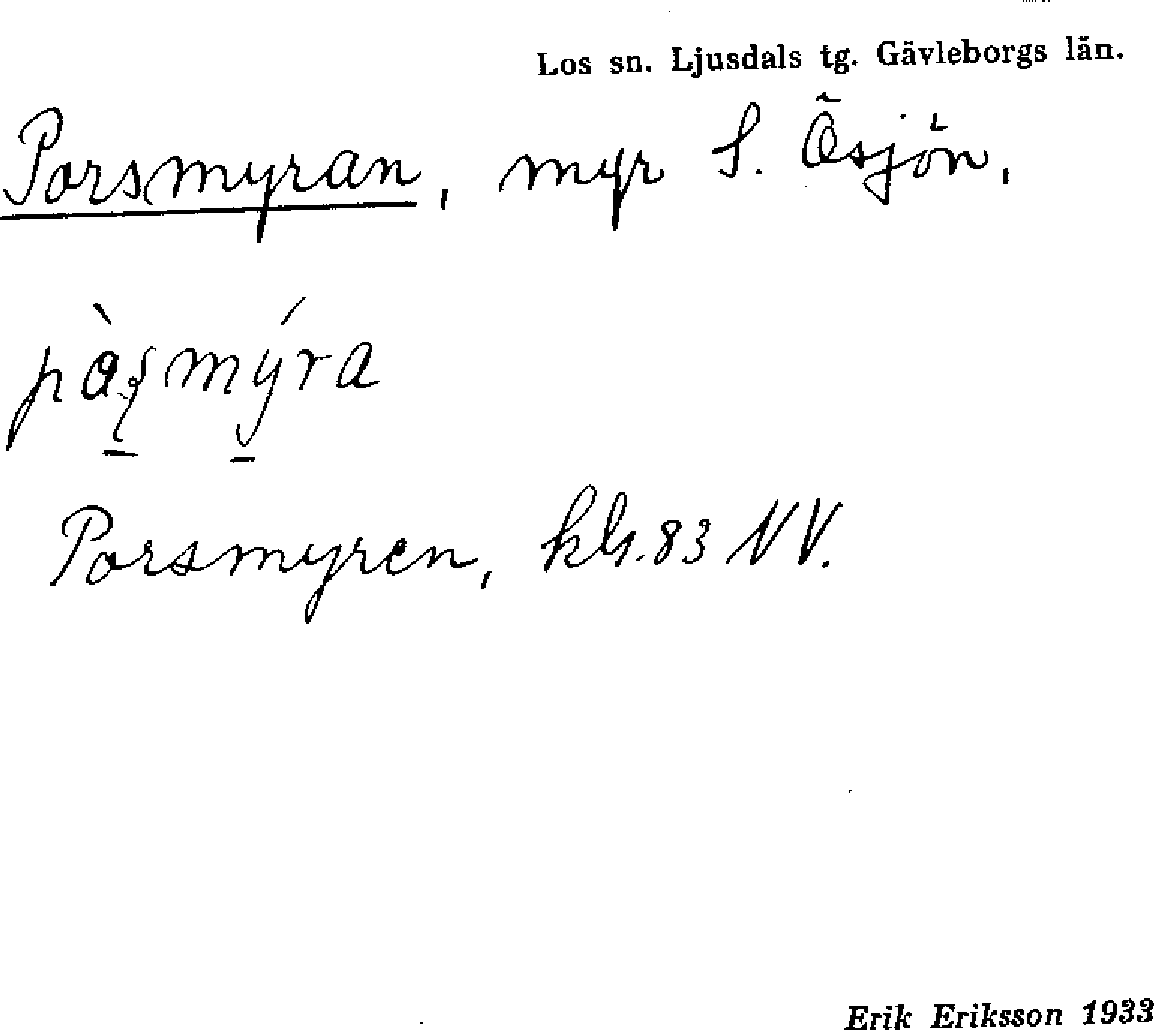 Los sn. Ljusdals tg. Gävleborgs län.
Porsmyran, myr S. Ösjön,
pàʂmýra
Porsmyren, kbl.83 NV.
Erik Eriksson 1933